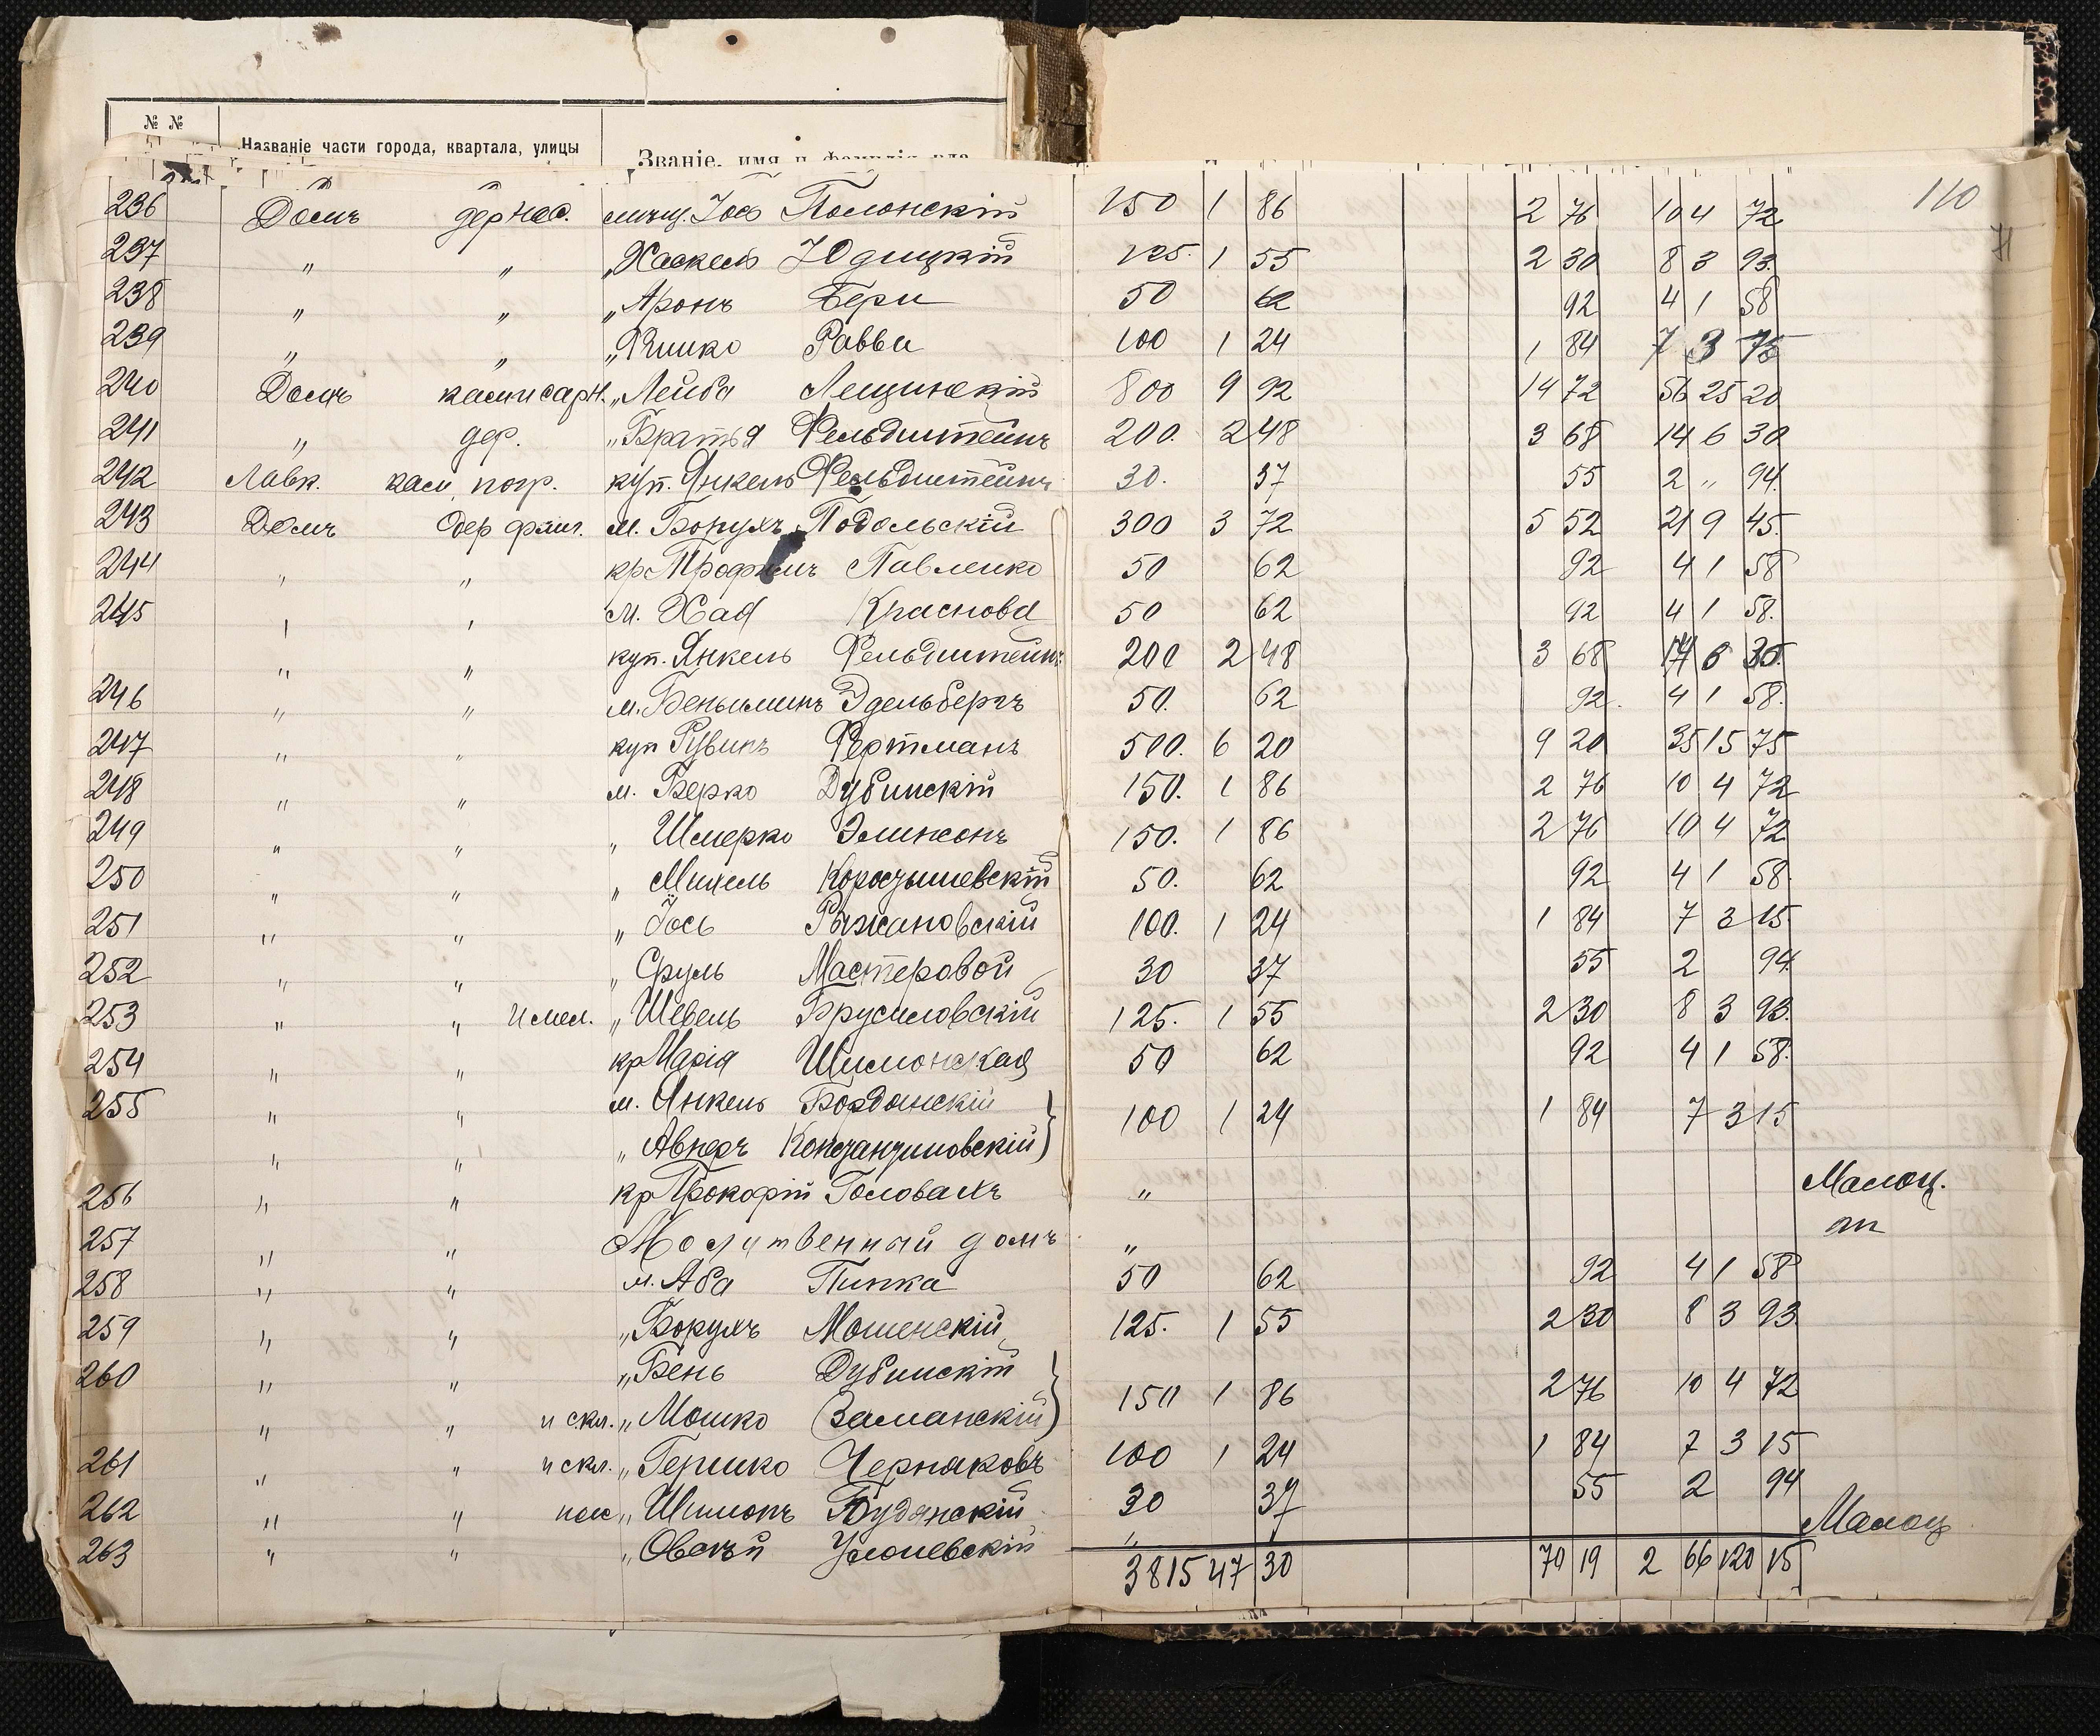 № №
Названіе части города, квартала, улицы
Званіе, имя и фамилія вла
110
71
236 Домъ дер мѣщ. Іось Полонскій 150 1 86 2 76 10 4 72
237 " " " Хаскель Юдицкій 125. 1 55 2 30 8 3 93.
238 " " " Аронъ Бери 50 62 92 4 1 58
239 " " " Рабви 100 1 24 1 84 7 3 75
240 Домъ " Лейба Лещинскій 800 9 92 14 72 56 25 20
241 " дер. " Братья Фельдштейнъ 200. 2 48 3 68 14 6 30
242 Лавк. кам. погр. куп. Янкель Фельдштейнъ 30. 37 55 2 " 94.
243 Домъ Одер флиг. м. Борухъ Подольскій 300 3 72 5 52 21 9 45.
244 " " кр Трофимъ Павленко 50 62 92 4 1 58
245 " " м. Хая Краснова 50 62 92 4 1 58.
" " куп. Янкель Фельдштейнъ 200 2 48 3 68 14 6 30.
246 " " м. Беньяминъ Эдельбергъ 50. 62 92. 4 1 58.
247 " " куп Рувинъ Фертманъ 500. 6 20 9 20 35 15 75
248 " " м. Берко Дубинскій 150. 1 86 2 76 10 4 72
249 " " " Шмерко Элинсонъ 150. 1 86 2 76 10 4 72
250 " " " Михель Коростышевскій 50. 62 92 4 1 58.
251 " " " Іось Ржановскій 100. 1 24 1 84 7 3 15
252 " " " Сруль Мастеровой 30 37 55 2 94.
253 " " и мел. " Шевель Брусиловскій 125. 1 55 2 30 8 3 93.
254 " " кр Марія Шимонская 50 62 92 4 1 58.
255 " " м. Янкель 100 1 24 1 84 7 3 15
" " " Авнеръ Константиновскій
256 " " кр Прокофій Головахъ " Малоц.
257 " " Молитвенный домъ " т
258 " " м. Аба Пипка 50 62 92 4 1 58
259 " " " Борухъ Мошенскій 125. 1 55 2 30 8 3 93
260 " " " Бень Дубинскій 150 1 86 2 76 10 4 72
" " и скл. " Мошко Заманскій
261 " " и скл. " Гершко Черняковъ 100 1 24 1 84 7 3 15
262 " " " Шимонъ Будянскій 30 37 55 2 94
263 " " " Овсѣй " Малоц
3815 47 30 70 19 2 66 120 15